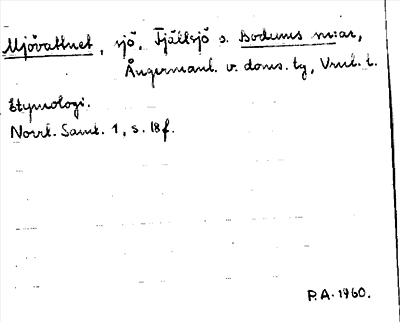 Mjövattnet, sjö, Fjällsjö o. Bodums n:ar,
Ångermanl. v. doms. tg, Vnrl. l.
Etymologi.
Norrl. Saml. 1, s. 18f.
P.A. 1960.